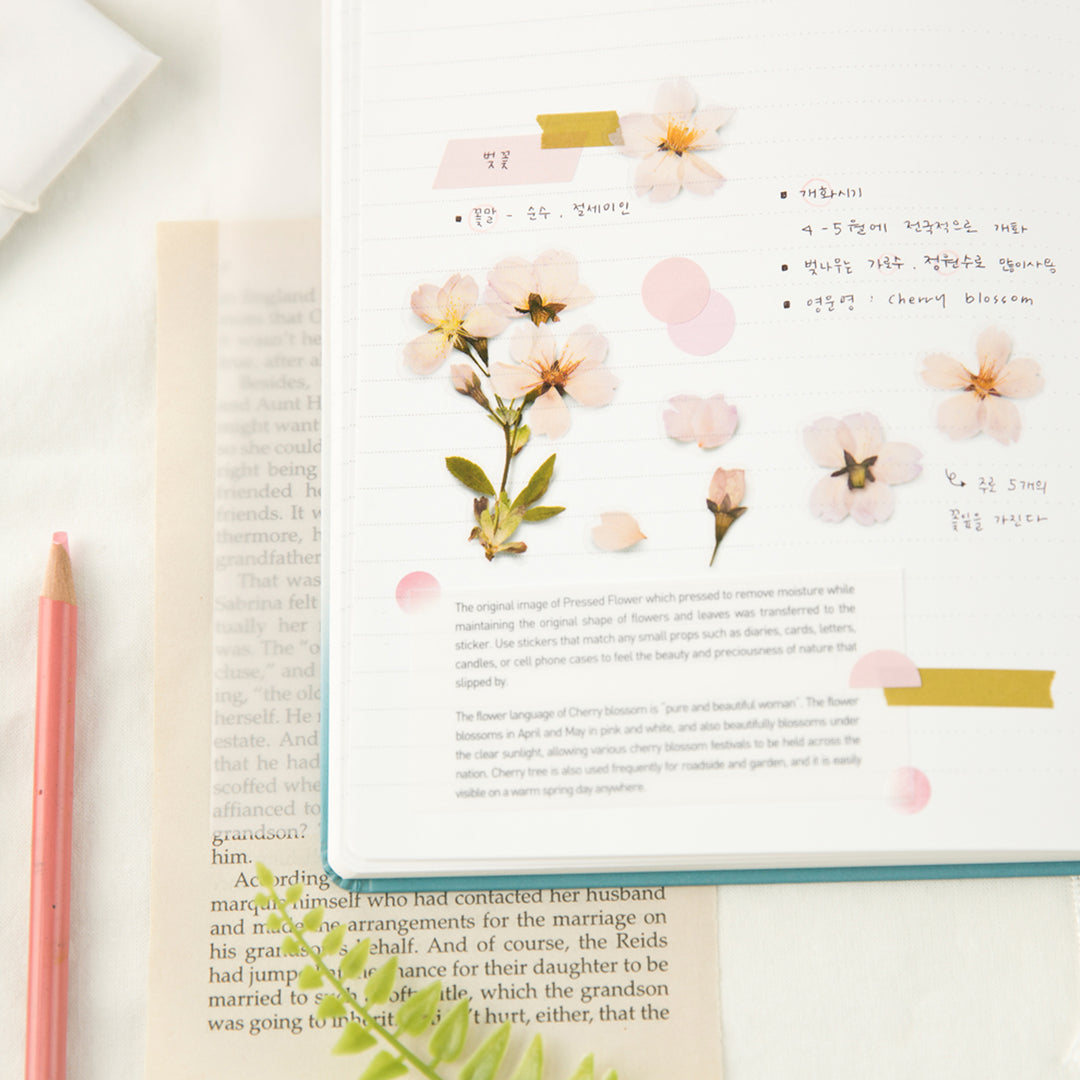 벚꽃
꽃말 - 순수. 절세미인
개화시기
4-5월에 전국적으로 개화
벚나무는 가로수. 정원수로 많이사용
영문명 : cherry blossom
주로 5개의
꽃잎을 가진다
The original image of Pressed Flower which pressed to remove moisture while
maintaining the original shape of flowers and leaves was transferred to the
sticker. Use stickers that match any small props such as diaries, cards, letters,
candles, or cell phone cases to feel the beauty and preciousness of nature that
slipped by.
The flower language of Cherry blossom is "pure and beautiful woman". The flower
blossoms in April and May in pink and white, and also beautifully blossoms under
the clear sunlight, allowing various cherry blossom festivals to be held across the
nation. Cherry tree is also used frequently for roadside and garden, and it is easily
visible on a warm spring day anywhere.
England
that
wasn't
after
Besides,
and Aunt
want
so she could
right being
friended
friends. It
thermore,
grandfather
That was
Sabrina felt
tually her
was. The
cluse," and
ing, "the old
herself. He
estate. And
that he had
scoffed
affianced to
grandson?
him.
According
marquis himself who had contacted her husband
and made the arrangements for the marriage on
his grandson's behalf. And of course, the Reids
had jumped at the chance for their daughter to be
married to such a lofty title, which the grandson
was going to inherit. hurt, either, that the